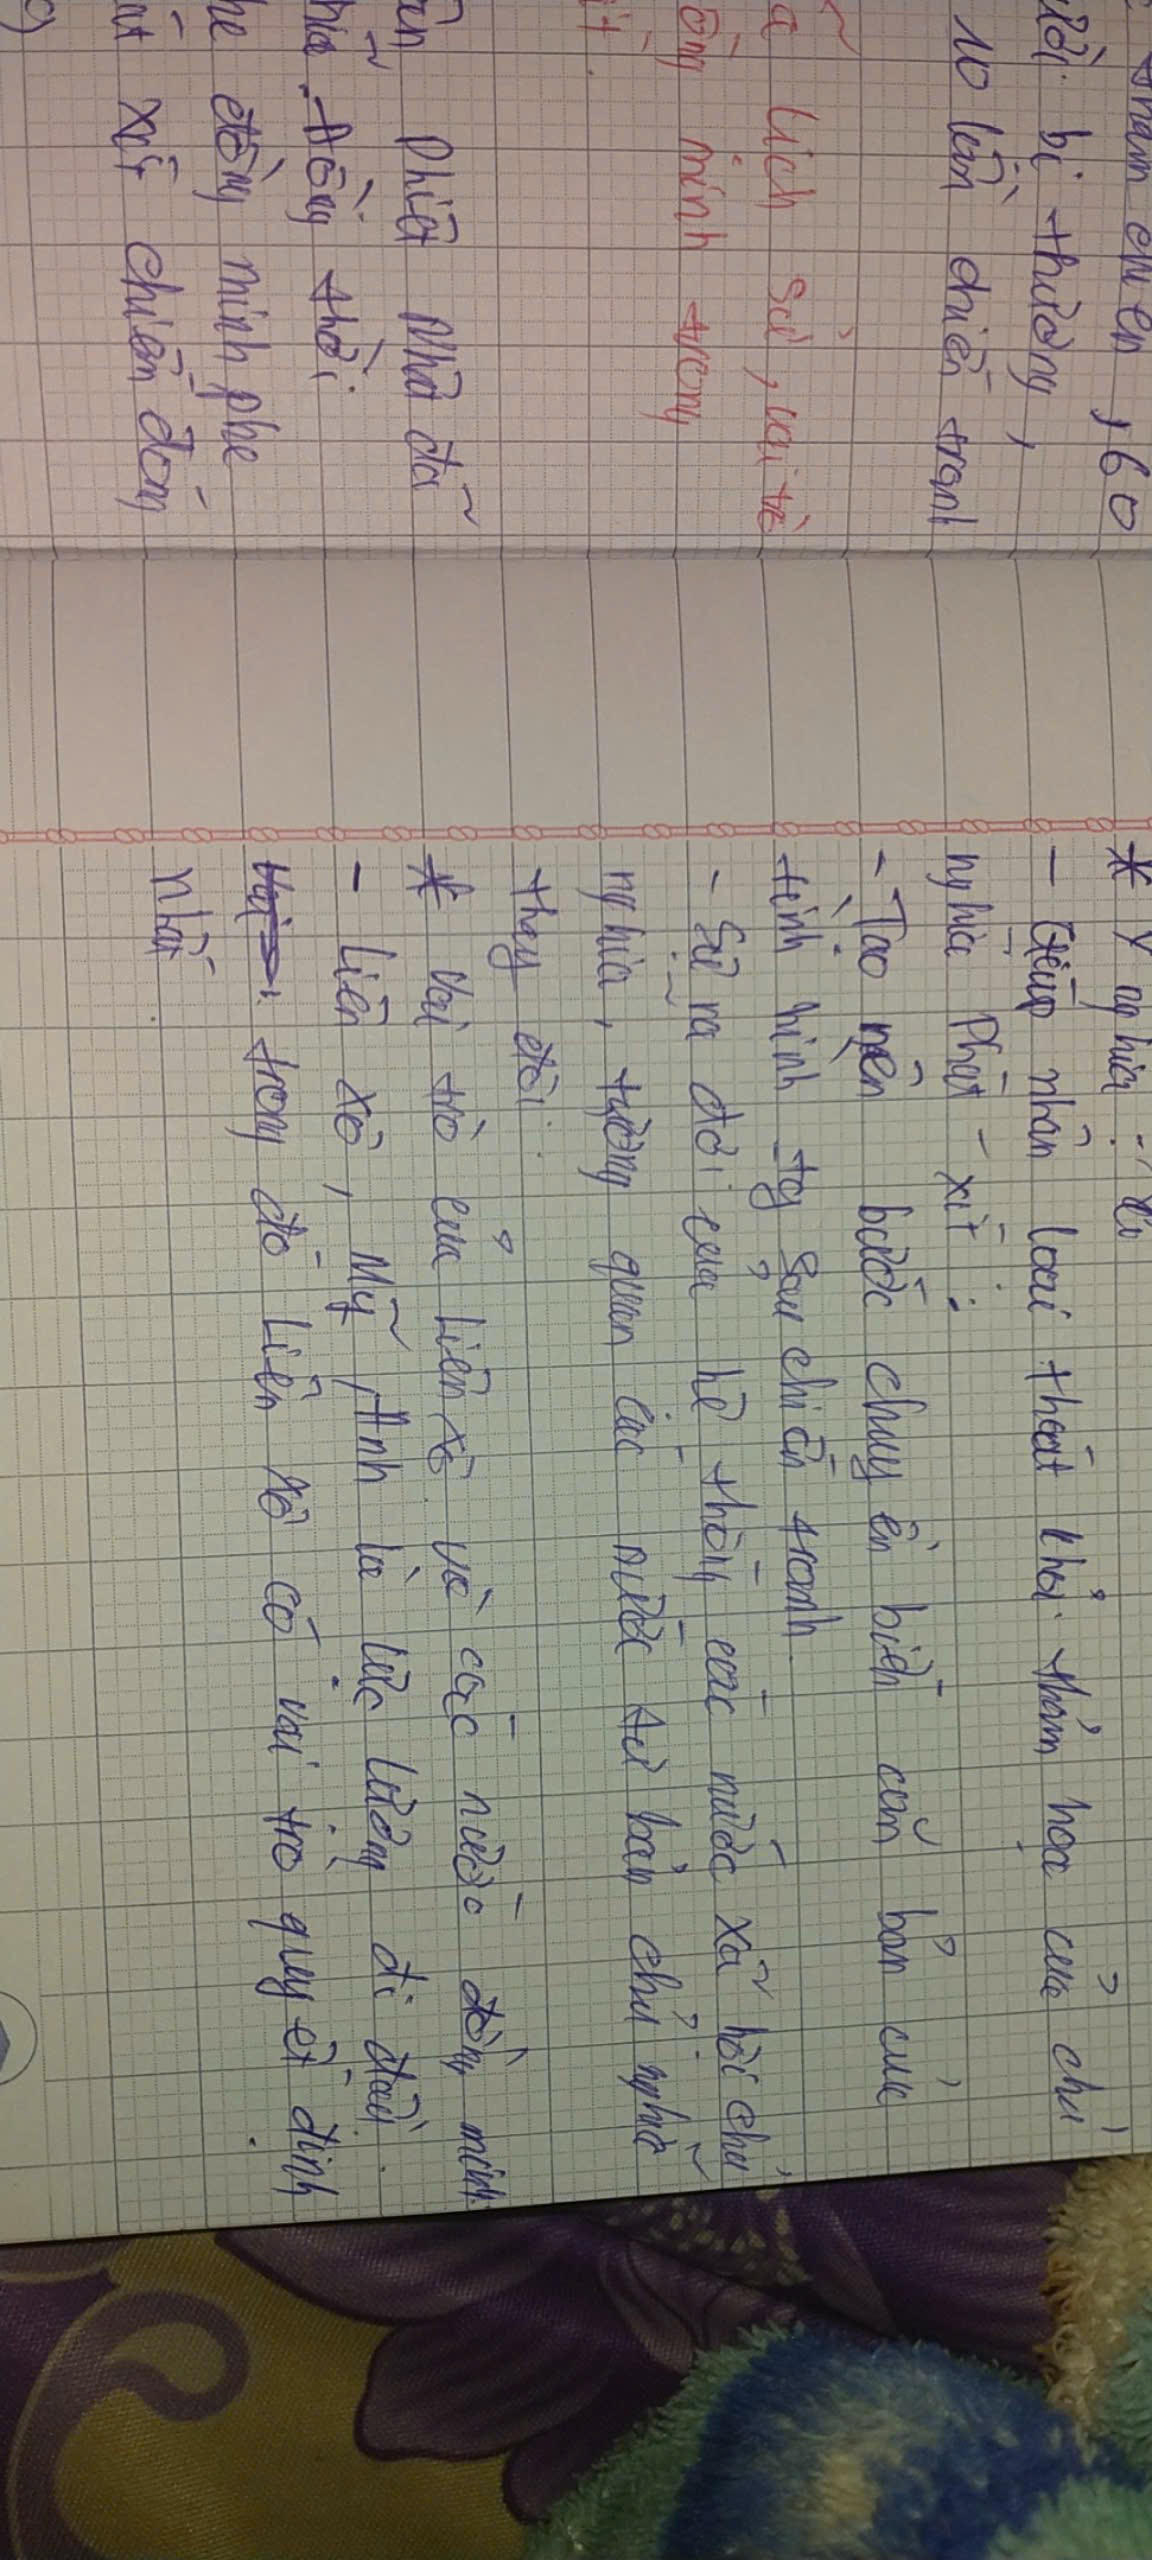 nam châm, 60
bị thương,
10 lần chiến tranh
lịch sử, vai trò
đồng minh trong
phiệt Nhật đã
Đồng thời
đồng minh phe
xít chiếm đóng
* Ý nghĩa :
- Giúp nhân loại thoát khỏi thảm họa của chủ
nghĩa Phát - xít :
- Tạo nên bước chuyển biến căn bản của
tình hình tg sau chiến tranh.
- Sự ra đời của hệ thống các nước xã hội chủ
nghĩa, tương quan các nước tư bản chủ nghĩa
thay đổi.
* Vai trò của Liên xô và các nước đồng minh
- Liên xô, Mỹ, Anh là lực lượng đi đầu.
trong đó Liên Xô có vai trò quyết định
nhất.